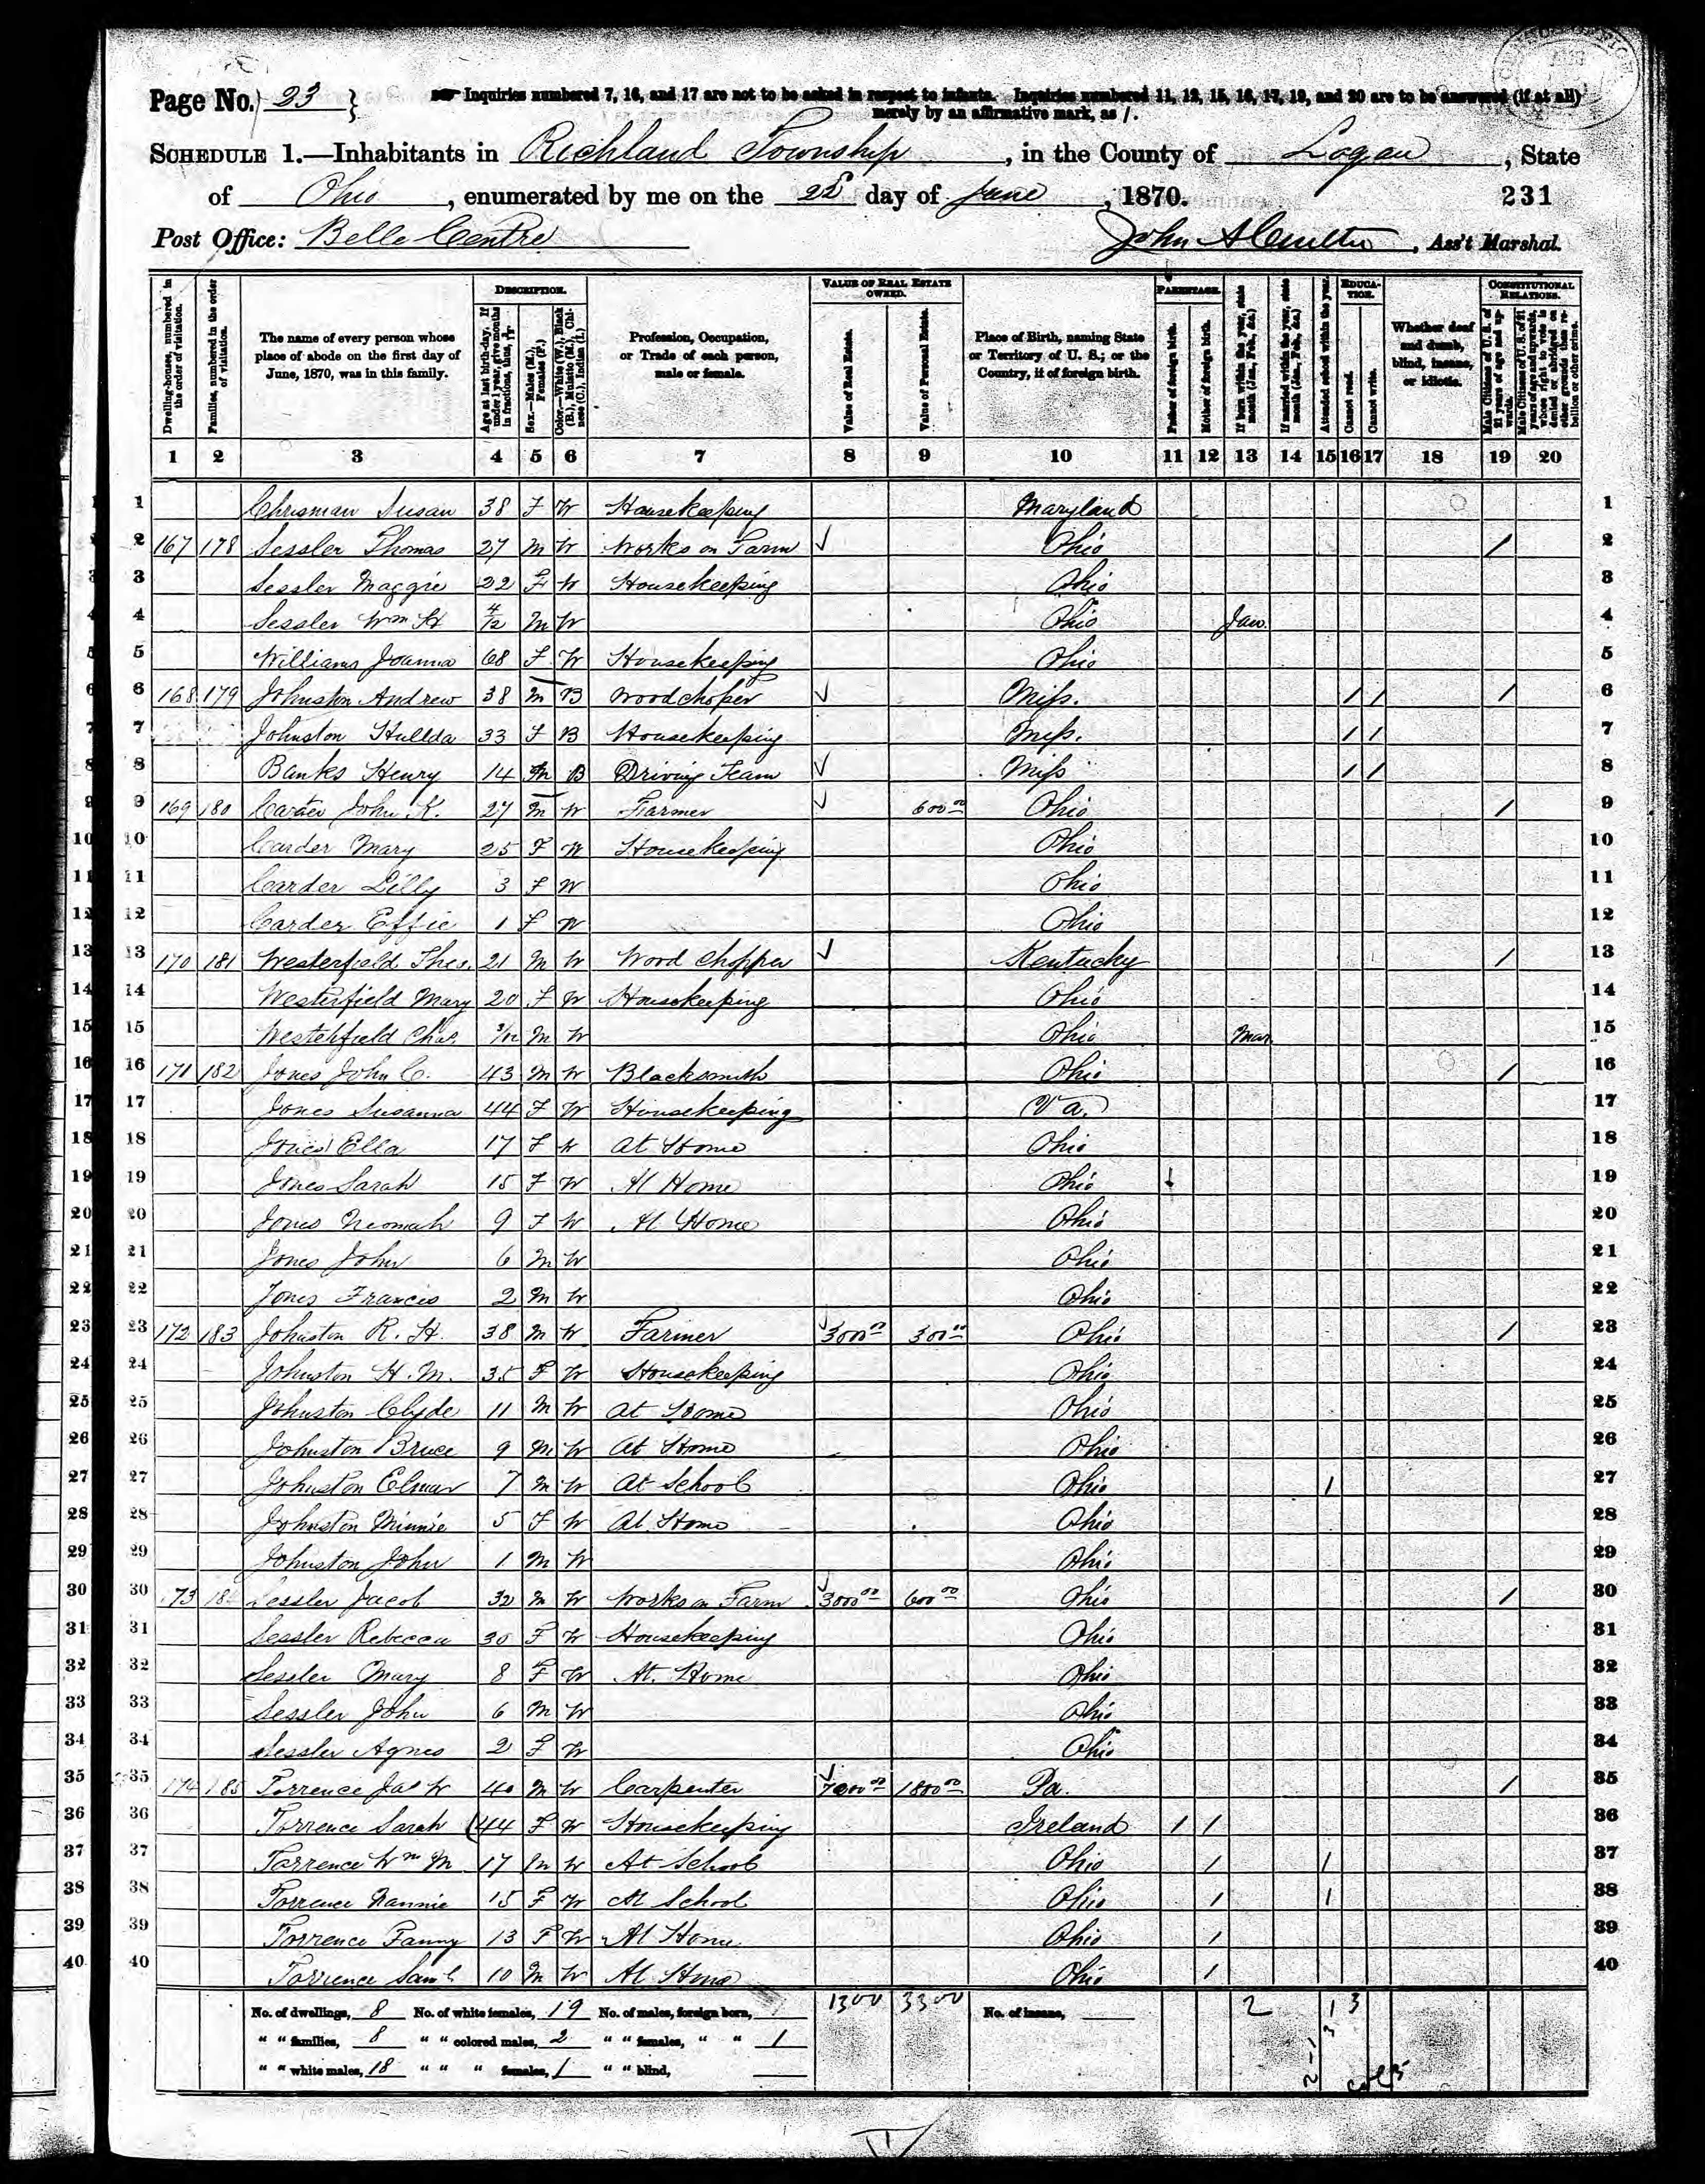 Page No. 23 }
Inquiries numbered 7, 16, and 17 are not to be asked in respect to infants. Inquiries numbered 11, 12, 15, 16, 17, 19, and 20 are to be answered (if at all)
merely by an affirmative mark, as /.
SCHEDULE 1.—Inhabitants in Richland Township, in the County of Logan, State
of Ohio, enumerated by me on the day of June, 1870. 231
Post Office: Belle Centre John A Coulter, Ass't Marshal.
DESCRIPTION. VALUE OF REAL ESTATE OWNED. PARENTAGE. EDUCATION. CONSTITUTIONAL RELATIONS.
Dwelling-houses, numbered in the order of visitation.
Families, numbered in the order of visitation.
The name of every person whose place of abode on the first day of June, 1870, was in this family.
Age at last birth-day. If under 1 year, give months in fractions, thus,
Sex.—Males (M.), Females (F.)
Color.—White (W.), Black (B.), Mulatto (M.), Chinese (C.), Indian (I.)
Profession, Occupation, or Trade of each person, male or female.
Value of Real Estate.
Value of Personal Estate.
Place of Birth, naming State or Territory of U. S.; or the Country, if of foreign birth.
Father of foreign birth.
Mother of foreign birth.
If born within the year, state month (Jan., Feb., &c.)
If married within the year, state month (Jan., Feb., &c.)
Attended school within the year.
Cannot read.
Cannot write.
Whether deaf and dumb, blind, insane, or idiotic.
Male Citizens of U. S. of 21 years of age and upwards.
Male Citizens of U. S. of 21 years of age and upwards, whose right to vote is denied or abridged on other grounds than rebellion or other crime.
1 2 3 4 5 6 7 8 9 10 11 12 13 14 15 16 17 18 19 20
1 1 Chrisman Susan 38 F W Housekeeping Maryland 1
2 2 167 178 Sessler Thomas 27 M W Works on Farm Ohio / 2
3 3 Sessler Maggie 22 F W Housekeeping Ohio 3
4 4 Sessler Wm H 4/12 M W Ohio Jan. 4
5 5 Williams Joanna 68 F W Housekeeping Ohio 5
6 6 168 179 Johnston Andrew 38 M B Woodchoper Miss. / / / 6
7 7 Johnston Hullda 33 F B Housekeeping Miss. / / 7
8 8 Banks Henry 14 M B Driving Team Miss / / 8
9 9 169 180 Carder John K. 27 M W Farmer 600 00 Ohio / 9
10 10 Carder Mary 25 F W Housekeeping Ohio 10
11 11 Carder Lilly 3 F W Ohio 11
12 12 Carder Effie 1 F W Ohio 12
13 13 170 181 Westerfield Theo. 21 M W Wood Chopper Kentucky / 13
14 14 Westerfield Mary 20 F W Housekeeping Ohio 14
15 15 Westerfield Chas 3/12 M W Ohio Mar. 15
16 16 171 182 Jones John C. 43 M W Blacksmith Ohio / 16
17 17 Jones Susanna 44 F W Housekeeping Va. 17
18 18 Jones Ella 17 F W At Home Ohio 18
19 19 Jones Sarah 15 F W At Home Ohio 19
20 20 Jones Neomah 9 F W At Home Ohio 20
21 21 Jones John 6 M W Ohio 21
22 22 Jones Francis 2 M W Ohio 22
23 23 172 183 Johnston R. H. 38 M W Farmer 3000 00 300 00 Ohio / 23
24 24 Johnston H. M. 35 F W Housekeeping Ohio 24
25 25 Johnston Clyde 11 M W At Home Ohio 25
26 26 Johnston Bruce 9 M W At Home Ohio 26
27 27 Johnston Elmar 7 M W At School Ohio / 27
28 28 Johnston Minnie 5 F W At Home Ohio 28
29 29 Johnston John 1 M W Ohio 29
30 30 173 Sessler Jacob 32 M W Works on Farm 3000 00 600 00 Ohio / 30
31 31 Sessler Rebecca 30 F W Housekeeping Ohio 31
32 32 Sessler Mary 8 F W At Home Ohio 32
33 33 Sessler John 6 M W Ohio 33
34 34 Sessler Agnes 2 F W Ohio 34
35 35 174 185 Torrence Jas W 40 M W Carpenter 7000 00 1800 00 Pa. / 35
36 36 Torrence Sarah 44 F W Housekeeping Ireland / / 36
37 37 Torrence Wm M 17 M W At School Ohio / / 37
38 38 Torrence Nannie 15 F W At School Ohio / / 38
39 39 Torrence Fanny 13 F W At Home Ohio / 39
40 40 Torrence Saml 10 M W At Home Ohio / 40
No. of dwellings, 8 No. of white females, 19 No. of males, foreign born, 1300 3300 No. of insane, 2 1 3
" " families, 8 " " colored males, 2 " " females, " " 1 3
" " white males, 18 " " " females, 1 " " blind, 2-1